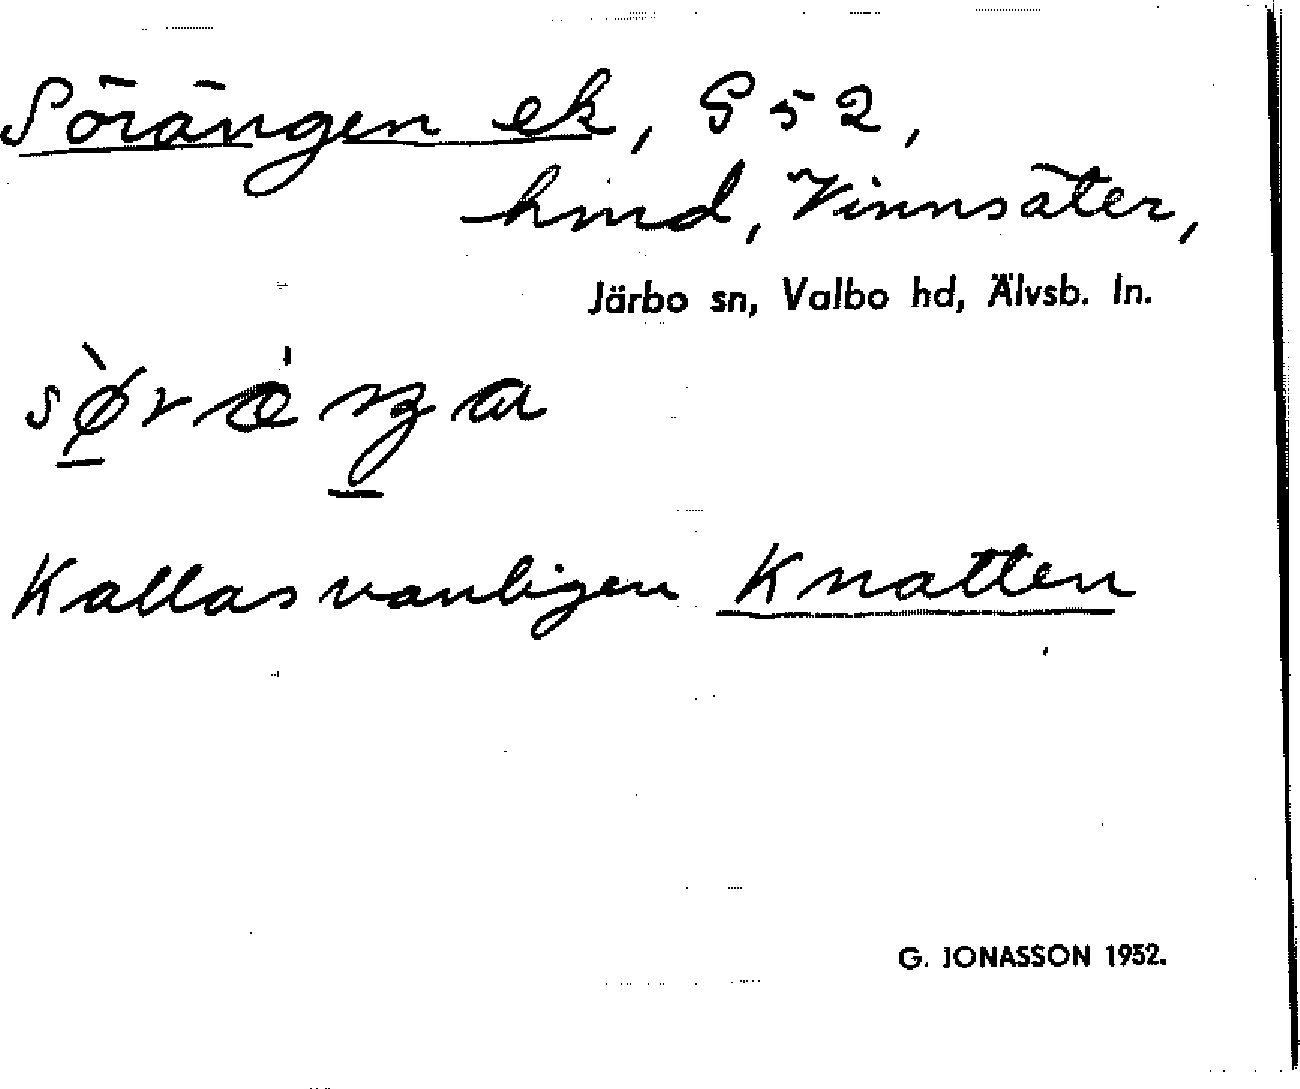 Sörängen ek, G 52,
hmd, Vinnsäter,
Järbo sn, Valbo hd, Älvsb. ln.
Kallas vanligen Knatten
G. JONASSON 1952.